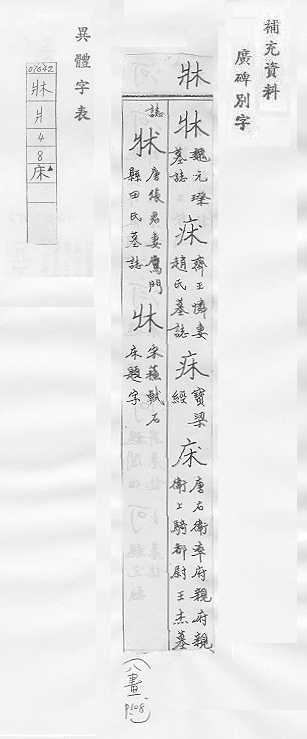 補充資料
廣碑別字
牀
牀 魏元璨墓誌 床 齊王憐妻趙氏墓誌 床 寶梁經 床 唐右衛率府親府親衛上騎都尉王杰墓
誌 牀 唐張君妻鴈門縣田氏墓誌 牀 宋蘇軾石床題字
八畫
P.508
異體字表
01642
牀
爿
4
8
床▲